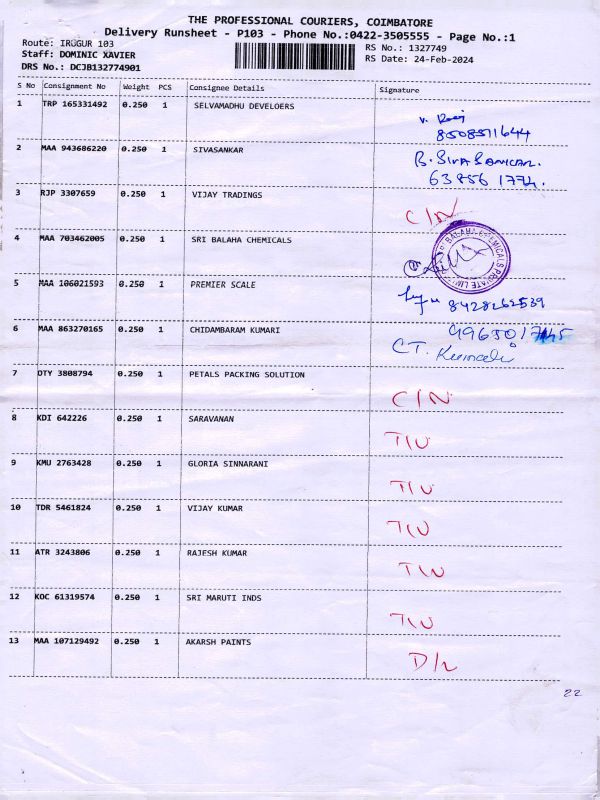 THE PROFESSIONAL COURIERS, COIMBATORE
Delivery Runsheet - P103 - Phone No.:0422-3505555 - Page No.:1
Route: IRUGUR 103 RS No.: 1327749
Staff: DOMINIC XAVIER RS Date: 24-Feb-2024
DRS No.: DCJB132774901
S No Consignment No Weight PCS Consignee Details Signature
1 TRP 165331492 0.250 1 SELVAMADHU DEVELOERS
8508511644
2 MAA 943686220 0.250 1 SIVASANKAR B. SIVA SANKAR.
63856 1774.
3 RJP 3307659 0.250 1 VIJAY TRADINGS C/N
4 MAA 703462005 0.250 1 SRI BALAHA CHEMICALS
BALAHA CHEMICALS PRIVATE LIMITED
5 MAA 106021593 0.250 1 PREMIER SCALE 8428262539
6 MAA 863270165 0.250 1 CHIDAMBARAM KUMARI
CT. Kumari
7 DTY 3808794 0.250 1 PETALS PACKING SOLUTION C/N
8 KDI 642226 0.250 1 SARAVANAN T/N
9 KMU 2763428 0.250 1 GLORIA SINNARANI T/N
10 TDR 5461824 0.250 1 VIJAY KUMAR T/N
11 ATR 3243806 0.250 1 RAJESH KUMAR T/N
12 KOC 61319574 0.250 1 SRI MARUTI INDS T/N
13 MAA 107129492 0.250 1 AKARSH PAINTS D/L
22